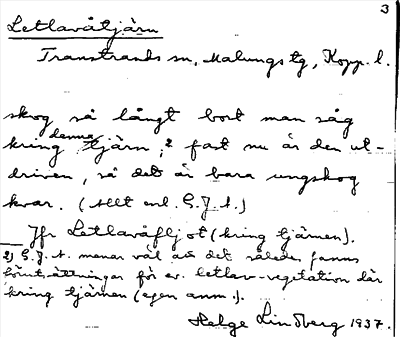 3
Letlavåtjärn
Transtrands sn, Malungs tg, Kopp. l.
skog så långt bort man såg
kring denna tjärn, 2 fast nu är den ut-
driven, så det är bara ungskog
kvar. (Allt enl. G. J. s.)
Jfr Letlavåfljot (kring tjärnen).
2) G. J. s. menar väl att det således fanns
förutsättningar för ev. letlav-vegetation där
kring tjärnen (egen anm.).
Helge Lindberg 1937.